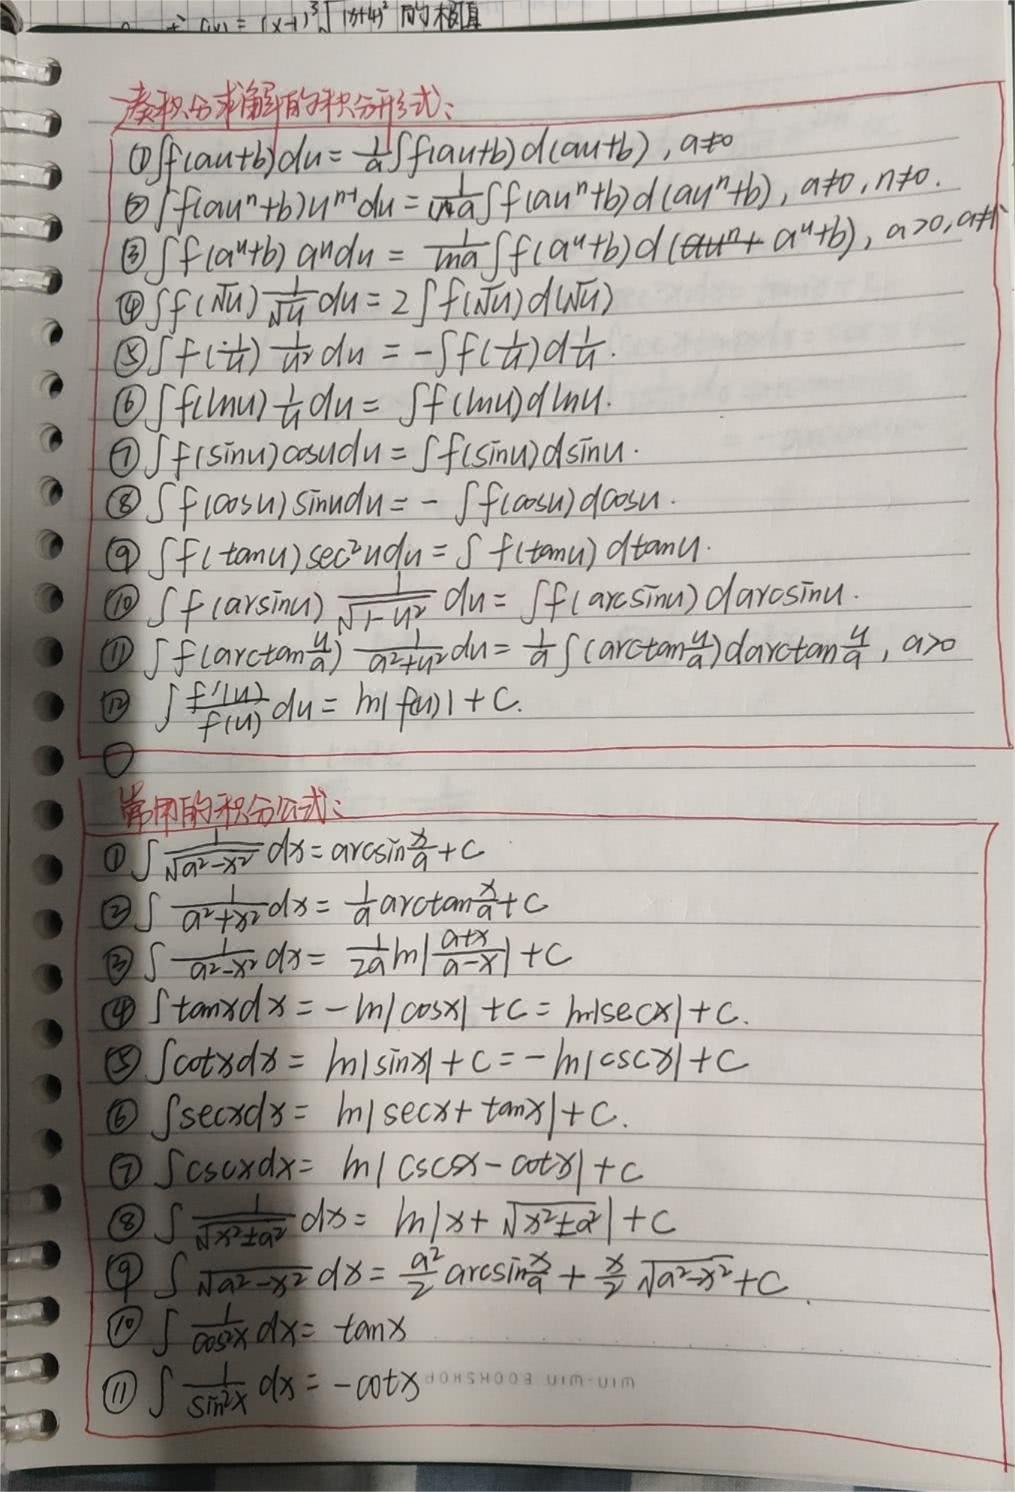 f(x) = (x-1)³√(x+4)² 的极值
凑积分求解的积分形式:
① ∫f(au+b)du = 1/a ∫f(au+b)d(au+b), a≠0
② ∫f(auⁿ+b)uⁿ⁻¹du = 1/(na) ∫f(auⁿ+b)d(auⁿ+b), a≠0, n≠0.
③ ∫f(aᵘ+b)aᵘdu = 1/lna ∫f(aᵘ+b)d(aᵘ+b), a>0, a≠1
④ ∫f(√u) 1/√u du = 2∫f(√u)d(√u)
⑤ ∫f(1/u) 1/u² du = -∫f(1/u)d1/u.
⑥ ∫f(lnu) 1/u du = ∫f(lnu)dlnu.
⑦ ∫f(sinu)cosudu = ∫f(sinu)dsinu.
⑧ ∫f(cosu)sinudu = -∫f(cosu)dcosu.
⑨ ∫f(tanu)sec²udu = ∫f(tanu)dtanu.
⑩ ∫f(arsinu) 1/√(1-u²) du = ∫f(arcsinu)darcsinu.
⑪ ∫f(arctan u/a) 1/(a²+u²) du = 1/a ∫(arctan u/a)darctan u/a, a>0
⑫ ∫f'(u)/f(u) du = ln|f(u)|+C.
常用的积分公式:
① ∫1/√(a²-x²) dx = arcsin x/a + C
② ∫1/(a²+x²) dx = 1/a arctan x/a + C
③ ∫1/(a²-x²) dx = 1/2a ln|(a+x)/(a-x)| + C
④ ∫tanxdx = -ln|cosx|+C = ln|secx|+C.
⑤ ∫cotxdx = ln|sinx|+C = -ln|cscx|+C
⑥ ∫secxdx = ln|secx+tanx|+C.
⑦ ∫cscxdx = ln|cscx-cotx|+C
⑧ ∫1/√(x²±a²) dx = ln|x+√(x²±a²)|+C
⑨ ∫√(a²-x²) dx = a²/2 arcsin x/a + x/2 √(a²-x²)+C
⑩ ∫1/cos²x dx = tanx
⑪ ∫1/sin²x dx = -cotx
WIN-WIN BOOKSHOP